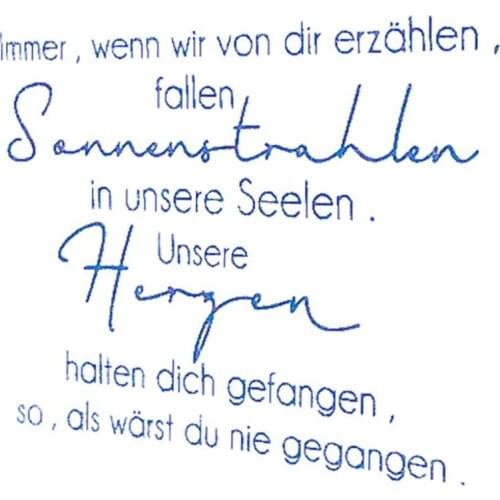 Immer , wenn wir von dir erzählen ,
fallen
Sonnenstrahlen
in unsere Seelen .
Unsere
Herzen
halten dich gefangen ,
so , als wärst du nie gegangen .